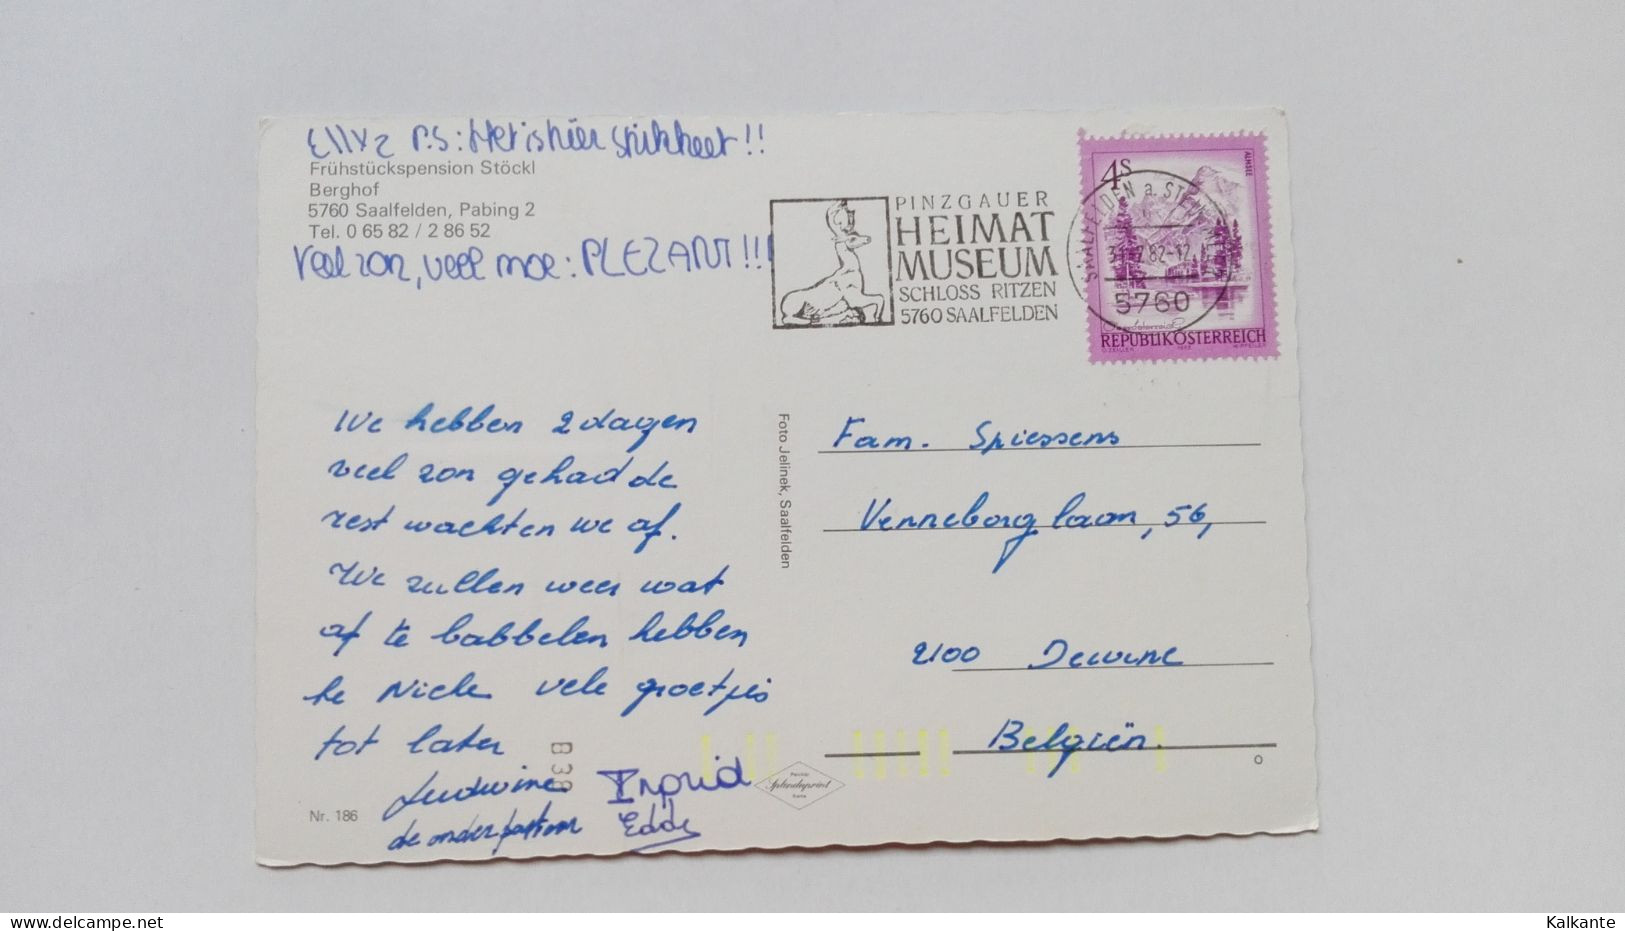 P.S.: Het is hier stikheet!!
Frühstückspension Stöckl
Berghof
5760 Saalfelden, Pabing 2
Tel. 0 65 82 / 2 86 52
Veel zon, veel moe: PLEZANT!!!
PINZGAUER
HEIMAT
MUSEUM
SCHLOSS RITZEN
5760 SAALFELDEN
4S
ALMSEE
SAALFELDEN a. ST
82-12
5760
REPUBLIK ÖSTERREICH
We hebben 2 dagen
veel zon gehad de
rest wachten we af.
We zullen weer wat
af te babbelen hebben
he Nicle vele groetjes
tot later
Ludwine Ingrid
Eddy
Foto Jelinek, Saalfelden
Fam. Spiessens
Venneborglaan, 56,
2100 Deurne
Belgiën.
B38
Splendeprint
Nr. 186
delcampe.net
Kalkante